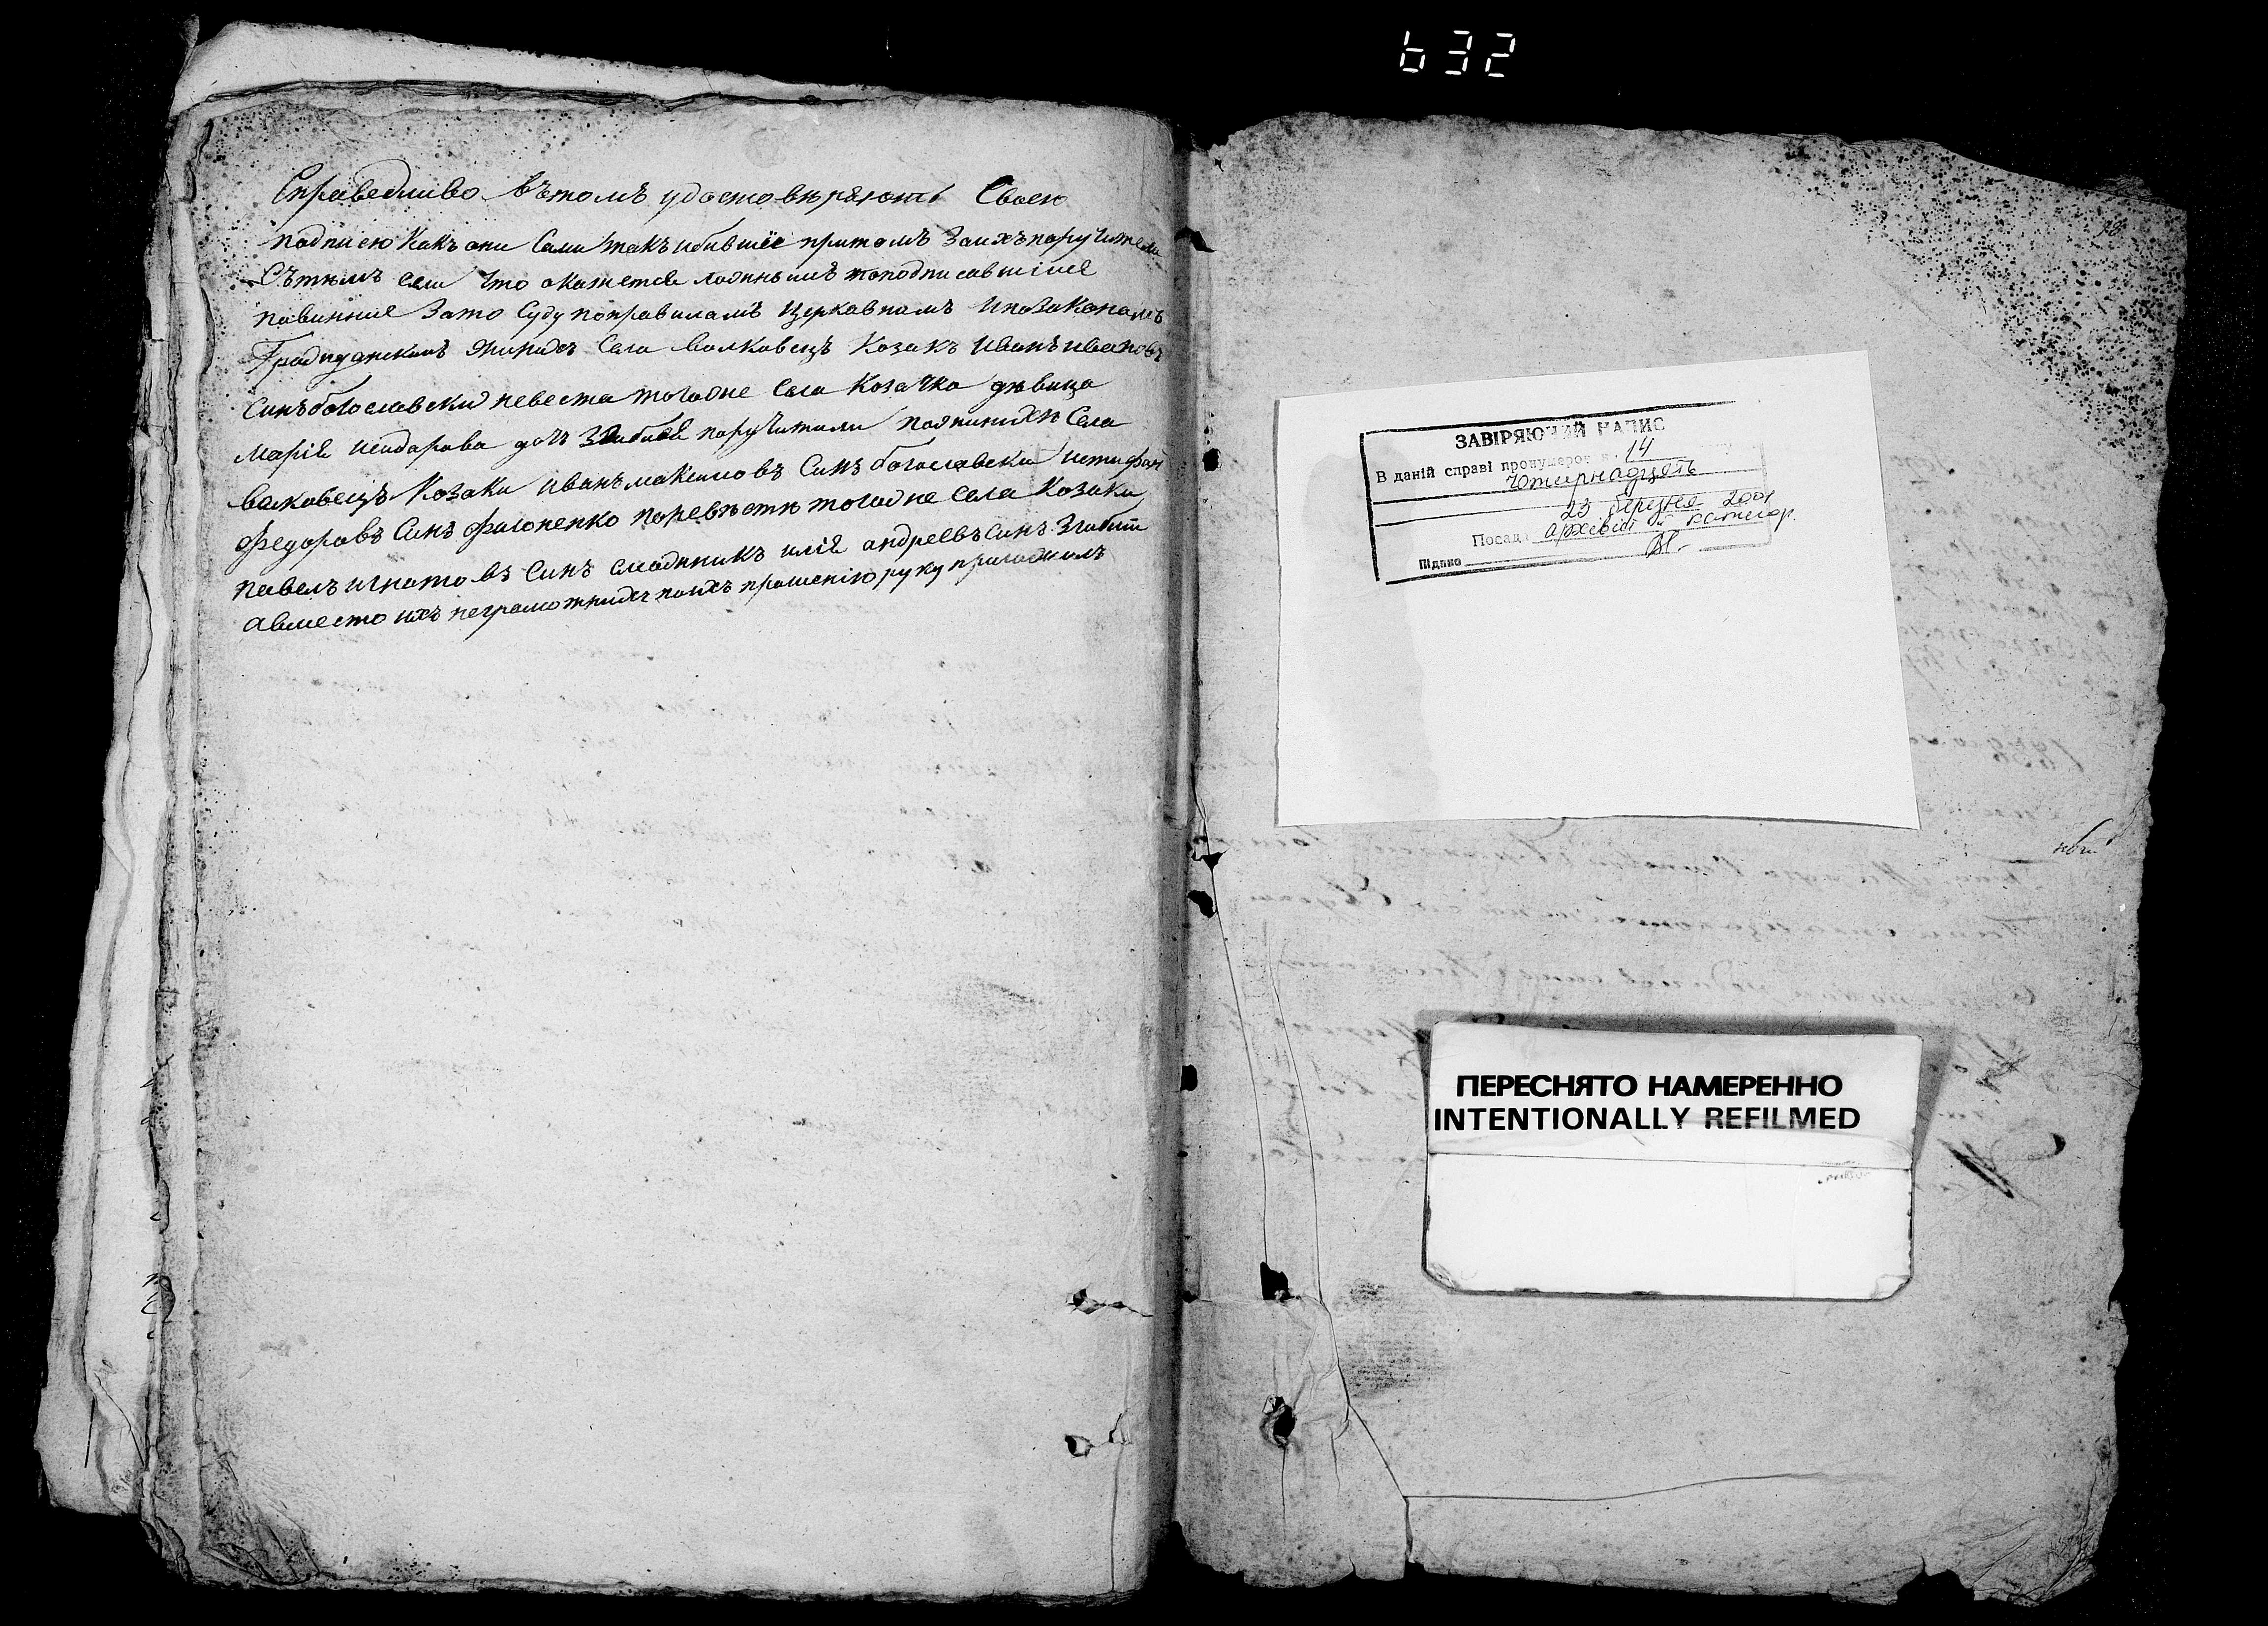 632
Справедливо вътомъ удостовѣряютъ Своею
подписею какъ они Сами такъ ибывшїе притомъ Заихъ поручители
Сътемъ ели что окажется ложнымъ топодписавшиися
повинние Зато Суду поправиламъ церковнамъ ипозаконамъ
Гражданскимъ женихъ Села волковецъ козакъ иванъ ивановъ
Синъ богославский невеста тогожне села козачка дѣвица
Марія дочъ поручители поженихѣ Села
волковецъ козаки иванъ максимовъ Синъ богославски
федоровъ Синъ филоненко поневѣстѣ тогожне села козаки
павелъ игнатовъ Синъ илія андреевъ Синъ
авместо ихъ неграмотнихъ поихъ прошению руку приложилъ
ЗАВІРЯЮЧИЙ НАПИС
В даній справі пронумеров 14
Чотирнадцять
23 березня 2001
Посада архівіст II категор.
Підпис
ПЕРЕСНЯТО НАМЕРЕННО
INTENTIONALLY REFILMED